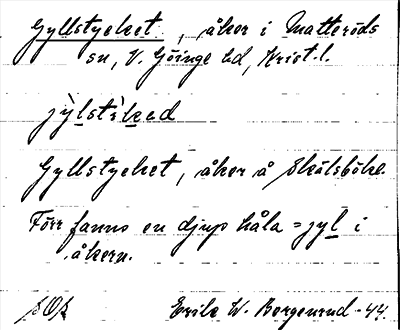 Gyllstycket, åker i Matteröds
sn, V. Göinge hd, Krist. l.
jỳlsti`ked
Gyllstycket, åker å Skälsböke.
Förr fanns en djup håla = jyl i
åkern.
Erik W. Bergenrud -44.